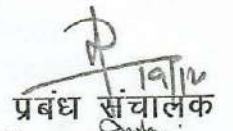 19/12
प्रबंध संचालक